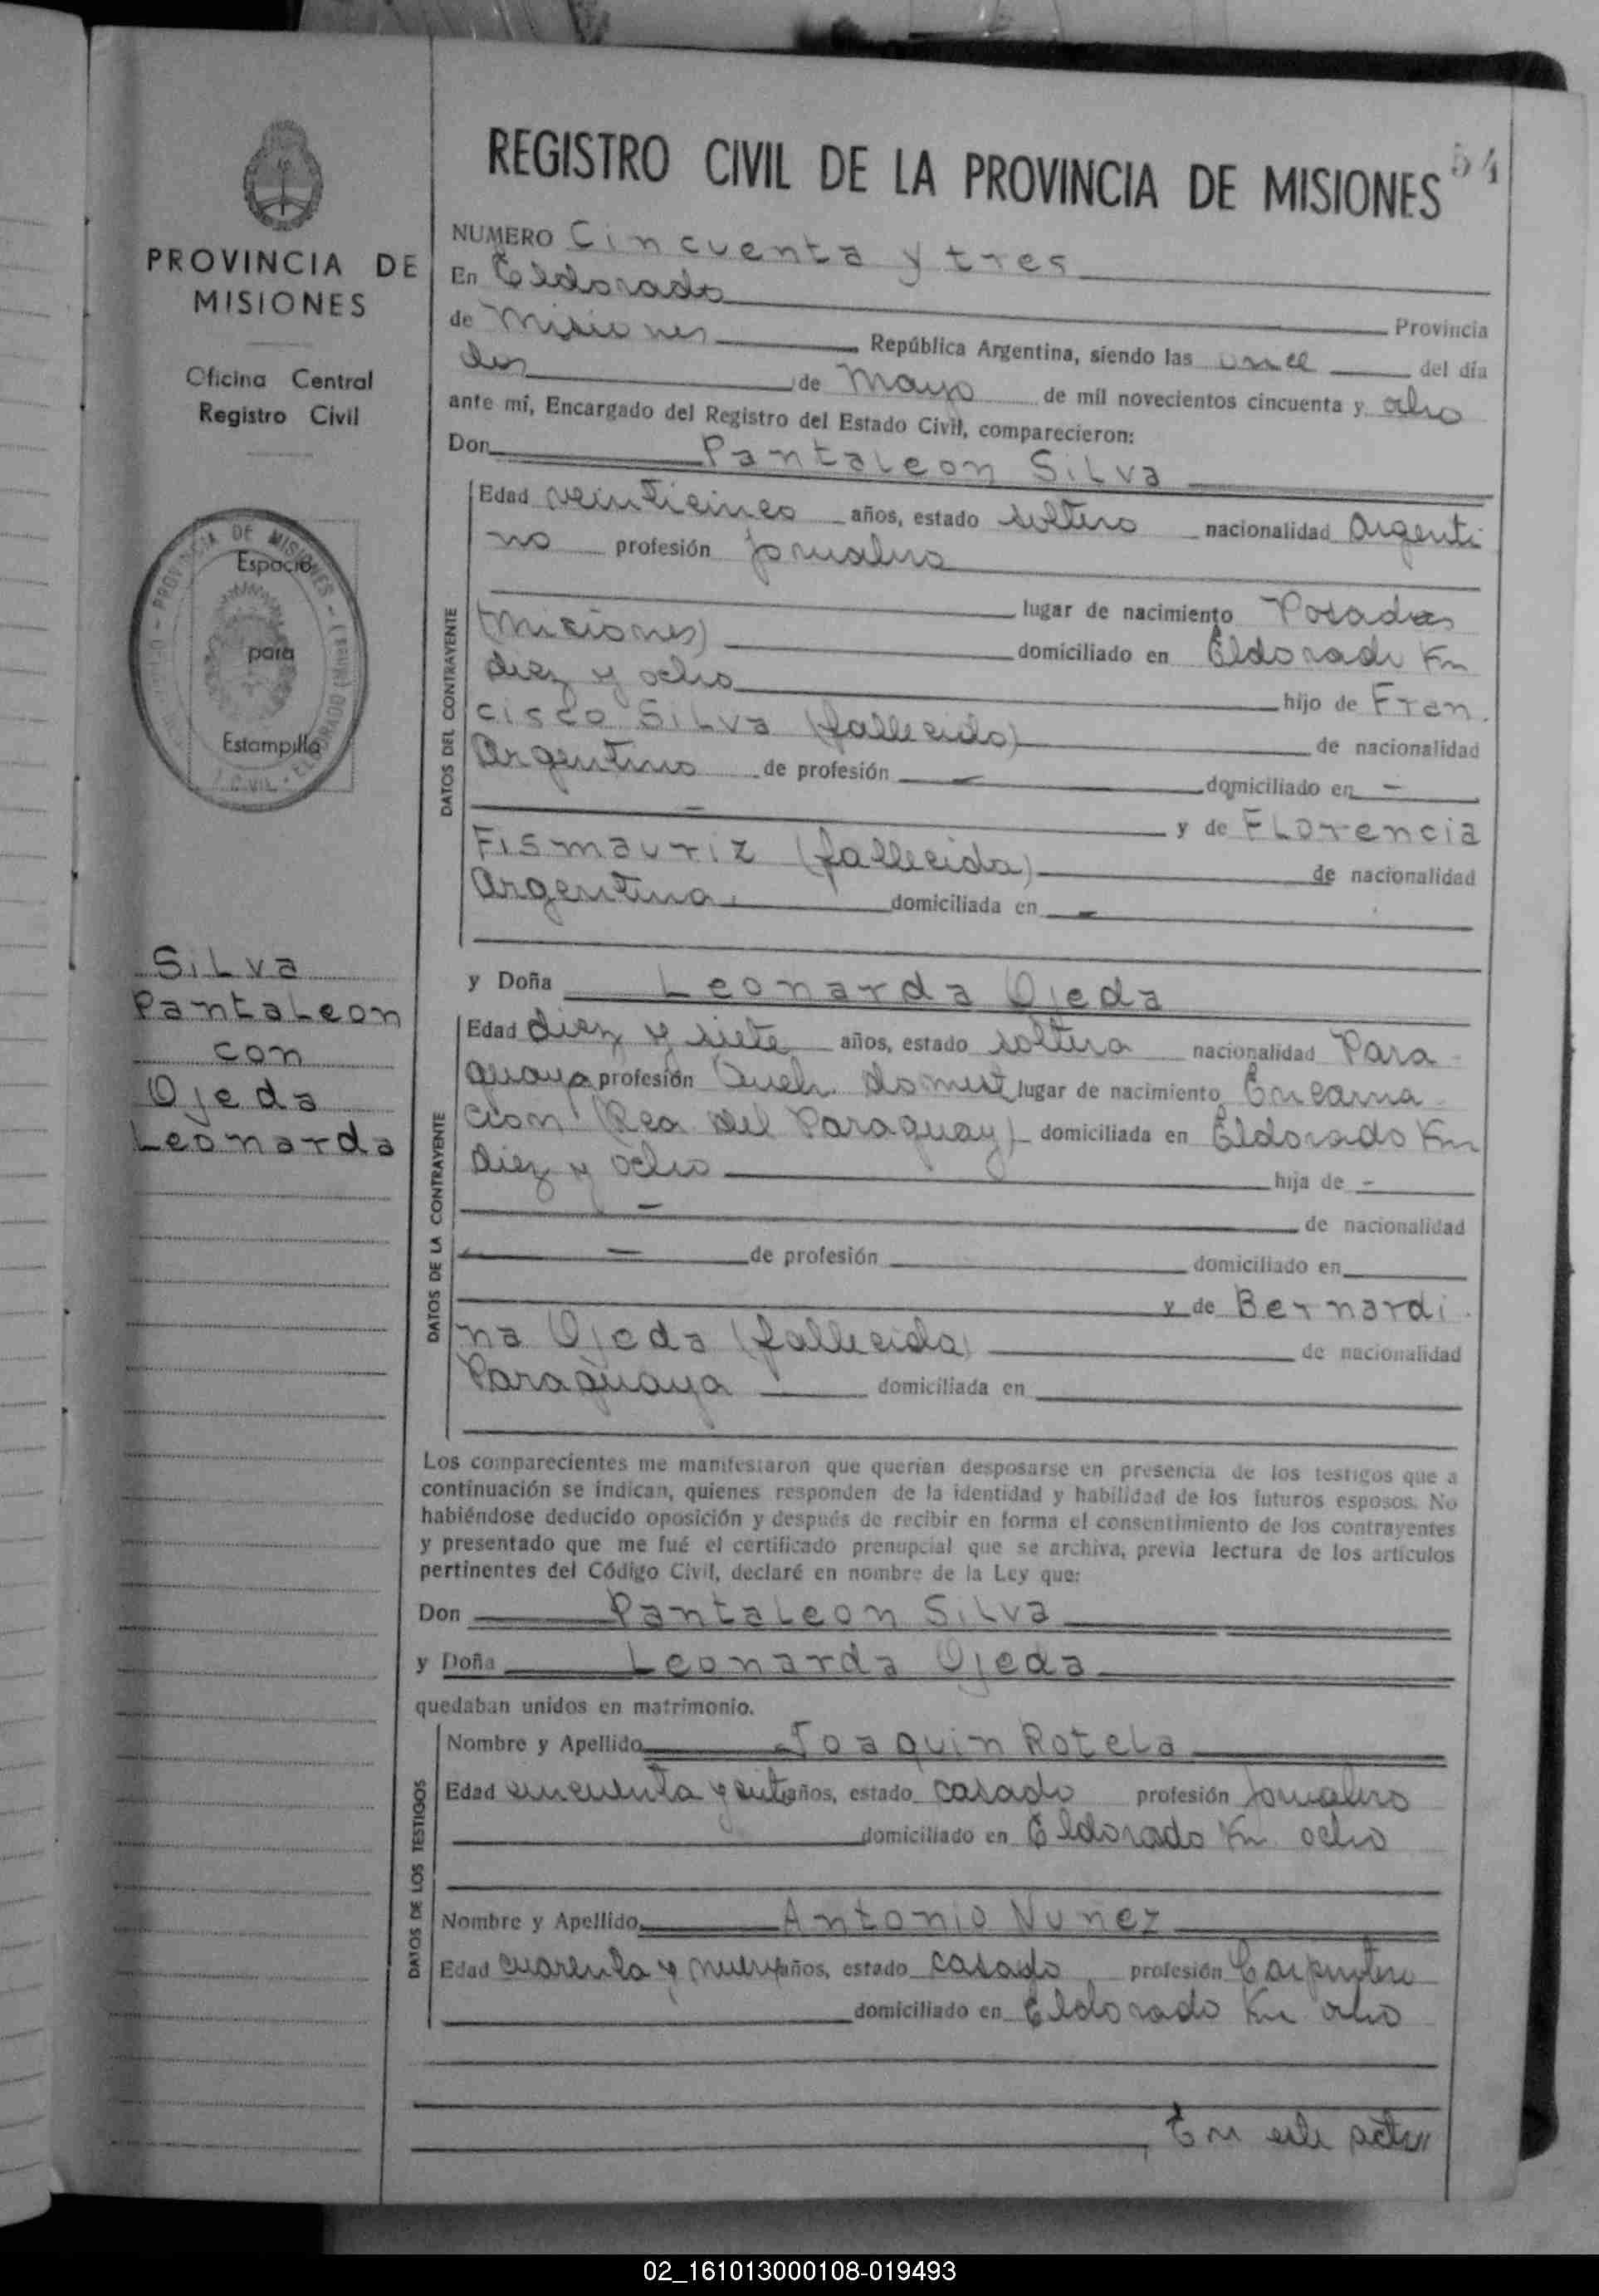 REGISTRO CIVIL DE LA PROVINCIA DE MISIONES 54
PROVINCIA DE
MISIONES
Oficina Central
Registro Civil
Espacio
para
Estampilla
PROVINCIA DE MISIONES
ELDORADO
Silva
Pantaleon
con
Ojeda
Leonarda
NUMERO Cincuenta y tres
En Eldorado Provincia
de Misiones República Argentina, siendo las once del día
dos de Mayo de mil novecientos cincuenta y ocho
ante mí, Encargado del Registro del Estado Civil, comparecieron:
Don Pantaleon Silva
DATOS DEL CONTRAYENTE
Edad veinticinco años, estado soltero nacionalidad Argenti
no profesión Jornalero
lugar de nacimiento Posadas
(Misiones) domiciliado en Eldorado Km
diez y ocho hijo de Fran
cisco Silva (fallecido) de nacionalidad
Argentino de profesión — domiciliado en —
— y de Florencia
Fismauriz (fallecida) de nacionalidad
Argentina domiciliada en —
y Doña Leonarda Ojeda
DATOS DE LA CONTRAYENTE
Edad diez y siete años, estado soltera nacionalidad Para
guaya profesión Queh. domest lugar de nacimiento Encarna
cion (Rca del Paraguay) domiciliada en Eldorado Km
diez y ocho hija de —
— de nacionalidad
— de profesión domiciliado en
y de Bernardi
na Ojeda (fallecida) de nacionalidad
Paraguaya domiciliada en
Los comparecientes me manifestaron que querían desposarse en presencia de los testigos que a
continuación se indican, quienes responden de la identidad y habilidad de los futuros esposos. No
habiéndose deducido oposición y después de recibir en forma el consentimiento de los contrayentes
y presentado que me fué el certificado prenupcial que se archiva, previa lectura de los artículos
pertinentes del Código Civil, declaré en nombre de la Ley que:
Don Pantaleon Silva
y Doña Leonarda Ojeda
quedaban unidos en matrimonio.
DATOS DE LOS TESTIGOS
Nombre y Apellido Joaquin Rotela
Edad cincuenta y siete años, estado casado profesión Jornalero
domiciliado en Eldorado Km ocho
Nombre y Apellido Antonio Nuñez
Edad cuarenta y nueve años, estado casado profesión Carpintero
domiciliado en Eldorado Km ocho
En este acto //
02_161013000108-019493